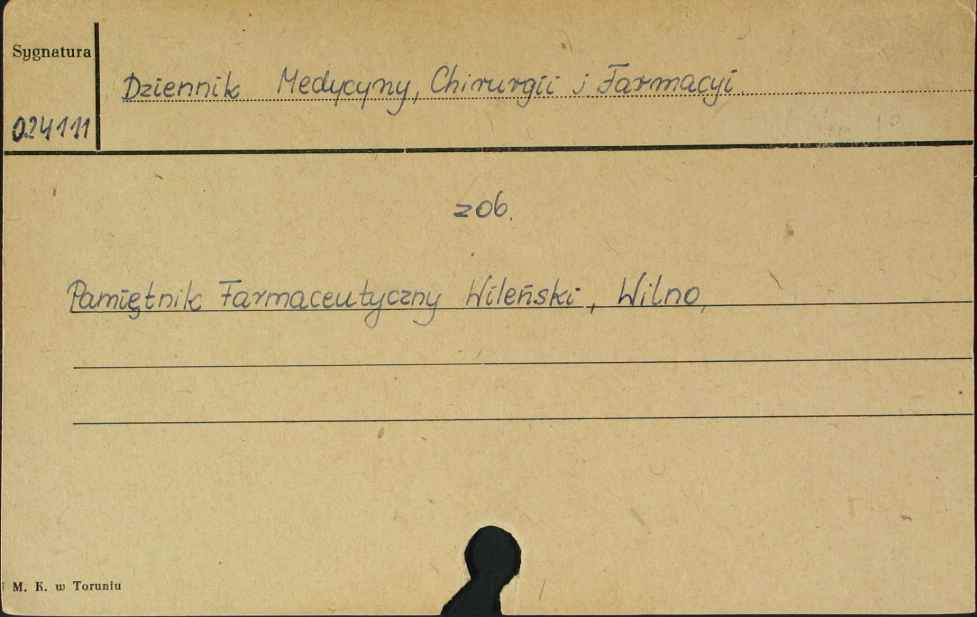 Sygnatura
Dziennik Medycyny, Chirurgii i Farmacyi
024111
zob.
Pamiętnik Farmaceutyczny Wileński, Wilno,
M. K. w Toruniu